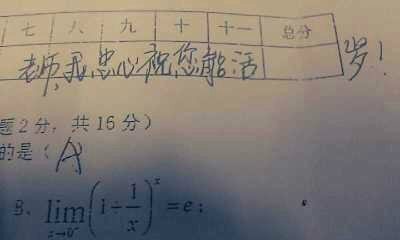 七 八 九 十 十一 总分
老师,我忠心祝您能活 岁!
题2分,共16分)
的是(A
B、lim x→0⁻ (1+1/x)^x = e;